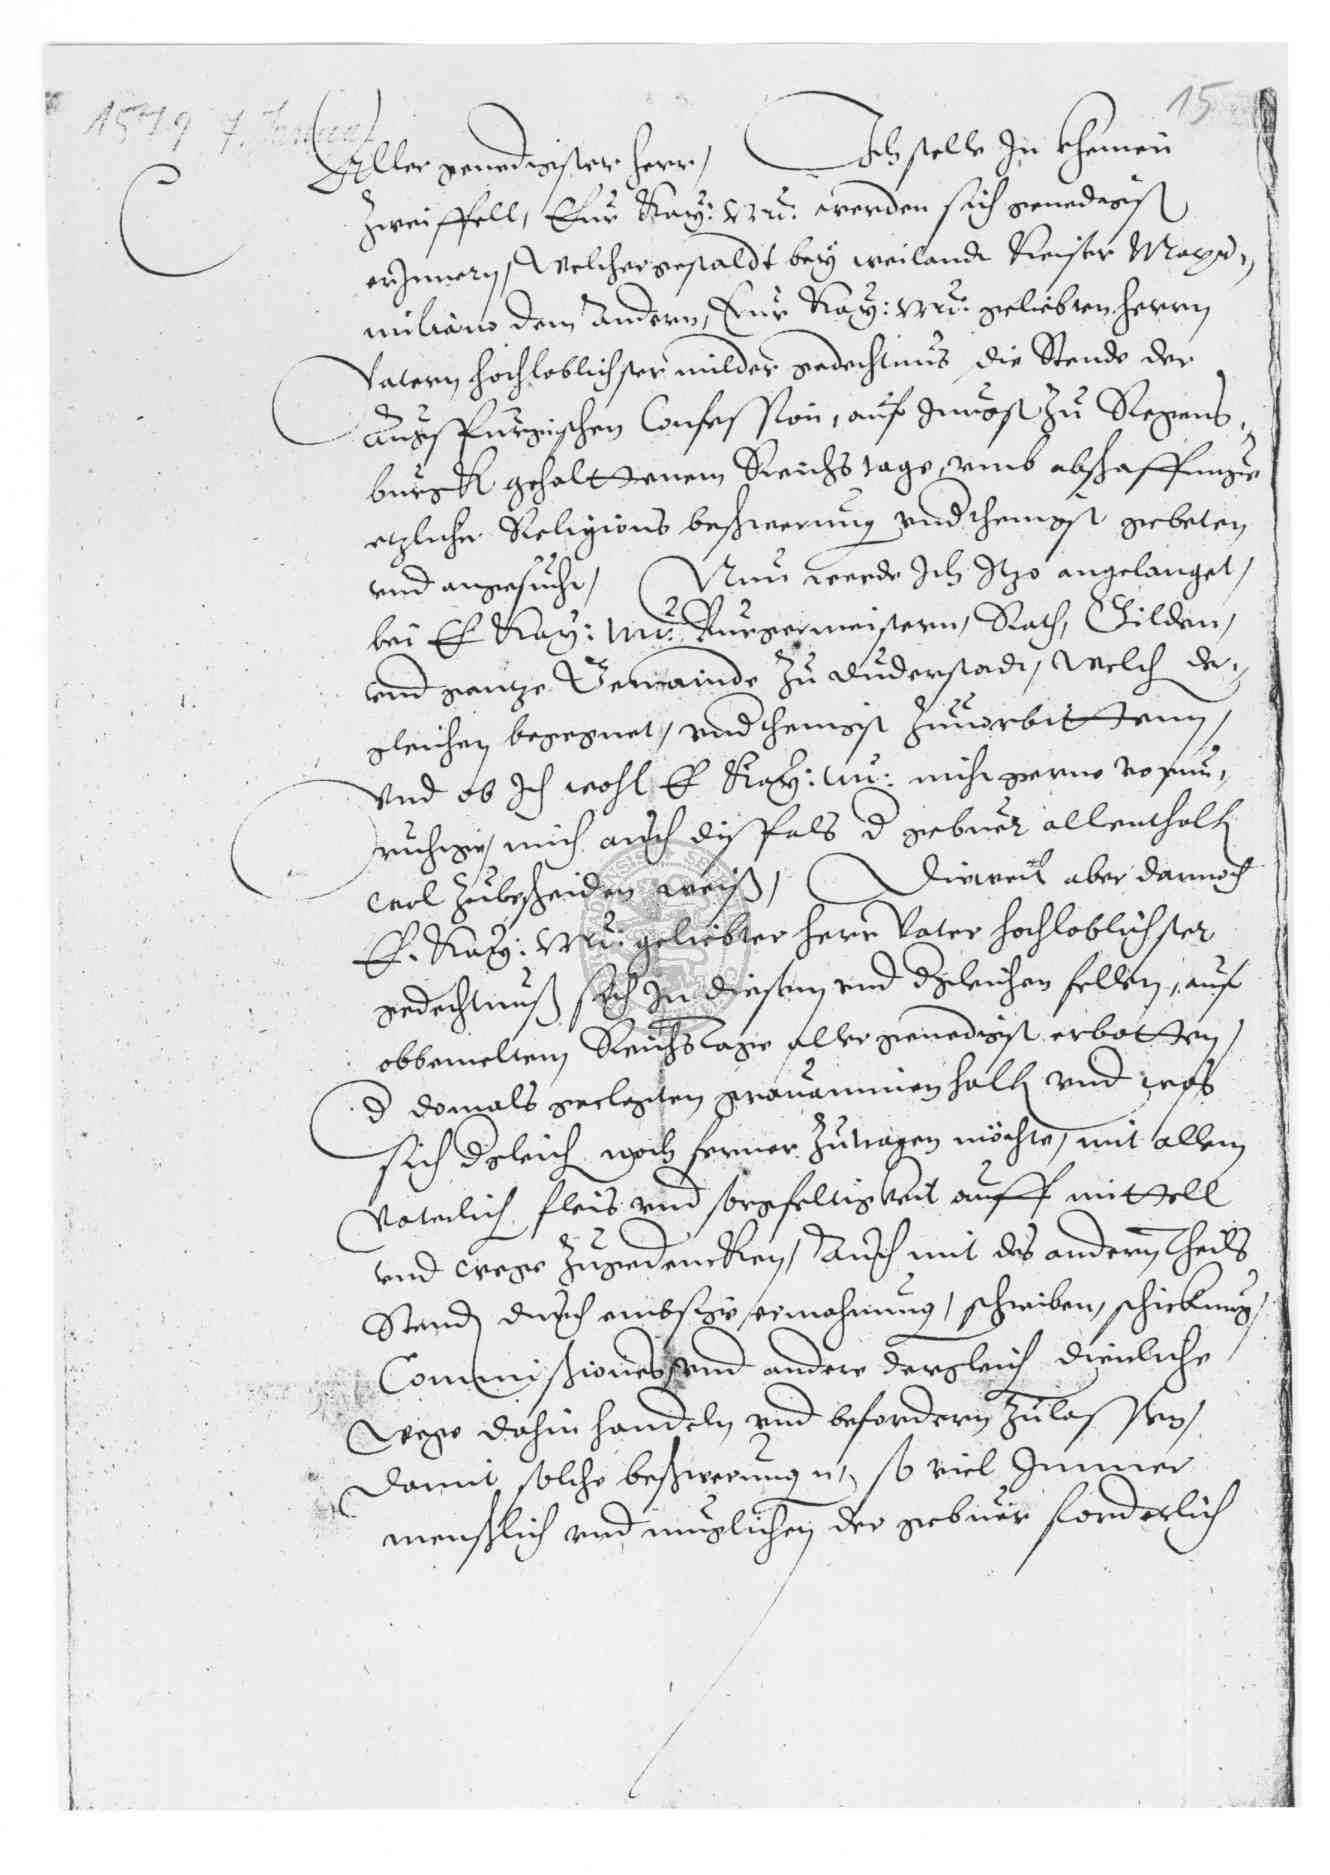 15
1579 7. Januar
Aller genedigister herr, Ich stelle In kheinen
zweiffell, Eur Kay: Mt: werden sich genedigist
erInnern, welchergestaldt bey weilandt Keiser Maxi-
miliano dem Andern, Eur Kay: Mt: geliebten herrn
Vatern hochloblichster milder gedechtnus die Stende der
Augspurgischen Confession, auf Jungst zu Regens-
burgk gehalttenem Reichs tage, umb abschaffunge
etzlicher Religions beschwerung underthenigst gebeten
und angesucht, Nun werde Ich Itzo angelanget,
bei E Kay: Mt: Burgermeistern, Rath, Gilden,
und gantze Gemainde zu Duderstadt, welch der-
gleichen begegnet, underthenigst zuuorbitten,
Und ob Ich wohl E Kay: Mt: nicht gerne
mich auch disfals d gebuer allenthalb
wol zubescheiden weiß, Dieweil aber dannoch
E. Kay: Mt: geliebter herr Vater hochloblichster
gedechtnuß sich In diesem und dgleichen fellen, auf
obbemeltem Reichstage aller genedigist erbotten,
d domals geclagten grauaminen halb und was
sich dgleich noch ferner zutragen möchte, mit allem
Vaterlich fleis und sorgfeltigkeit auff mittell
und wege zugedencken, Auch mit des andern Theils
Stend durch embsige ermahnung, schreiben, schickung,
Commissiones und andere dergleich dienliche
wege dahin handeln und befordern zulassen,
Damit solche beschwerungn, so viel Immer
menschlich und muglichen der gebuer forderlich